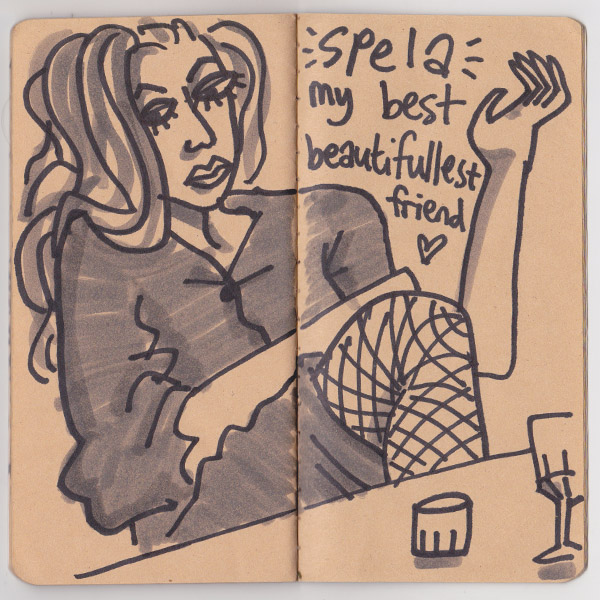 spela
my best
beautifullest
friend